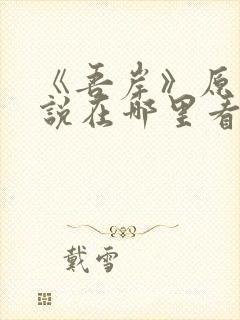 《吾岸》原
説在哪里看
戴雪